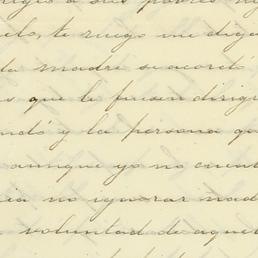 a sus padres
elo, te ruego me diga
la madre se acordó
s que le fuesen dirigi
ndó y la persona qu
aunque yo no cuent
ia no ignorar nad
voluntad de aque